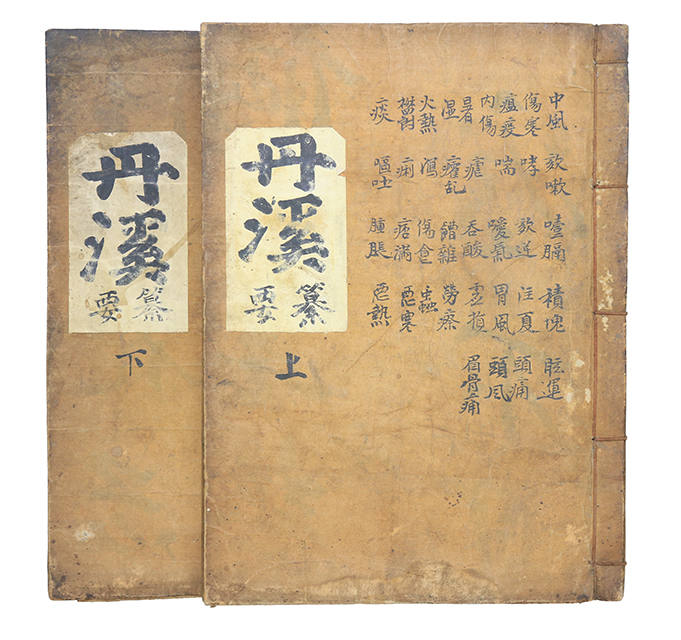 中風 傷寒 瘟疫 内傷 暑 湿 火熱 鬱 痰
欬嗽 哮 喘 瘧 癨乱 瀉 痢 嘔吐
噎膈 欬逆 噯氣 吞酸 嘈雜 傷食 痞滿 腫脹
積塊 注夏 胃風 虛損 勞瘵 惡寒 惡熱
眩運 頭痛 頭風 眉骨痛
丹溪
纂要
上
丹溪
纂要
下